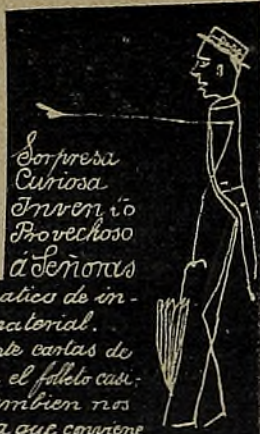 Sorpresa
Curiosa
Inven to
Provechoso
á Señoras
matico de in-
material.
nte cartas de
el folleto casi;
mbien nos
a que conviene